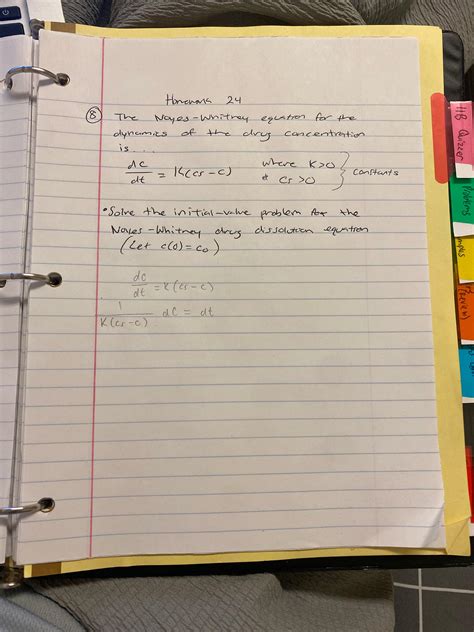 Homework 24
⑧ The Noyes-Whitney equation for the
dynamics of the drug concentration
is ...
dc/dt = K(cs - c) where K>0 & cs>0 } constants
• Solve the initial-value problem for the
Noyes-Whitney drug dissolution equation
(Let c(0) = c₀)
dc/dt = K(cs - c)
1/K(cs-c) dc = dt
HB Quizzes